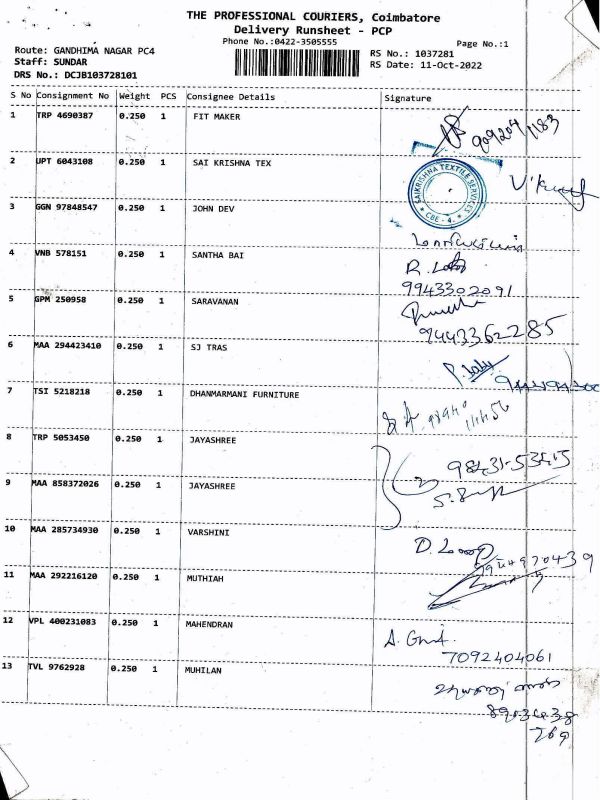 THE PROFESSIONAL COURIERS, Coimbatore
Delivery Runsheet - PCP
Phone No.:0422-3505555
Page No.:1
Route: GANDHIMA NAGAR PC4
RS No.: 1037281
Staff: SUNDAR
RS Date: 11-Oct-2022
DRS No.: DCJB103728101
S No Consignment No Weight PCS Consignee Details Signature
1 TRP 4690387 0.250 1 FIT MAKER
2 UPT 6043108 0.250 1 SAI KRISHNA TEX
SAIKRISHNA TEXTILE SERVICES
CBE - 4.
3 GGN 97848547 0.250 1 JOHN DEV
4 VNB 578151 0.250 1 SANTHA BAI
9943302091
5 GPM 250958 0.250 1 SARAVANAN
9443362285
6 MAA 294423410 0.250 1 SJ TRAS
7 TSI 5218218 0.250 1 DHANMARMANI FURNITURE
8 TRP 5053450 0.250 1 JAYASHREE
98431-53415
9 MAA 858372026 0.250 1 JAYASHREE
10 MAA 285734930 0.250 1 VARSHINI
11 MAA 292216120 0.250 1 MUTHIAH
12 VPL 400231083 0.250 1 MAHENDRAN
7092404061
13 TVL 9762928 0.250 1 MUHILAN